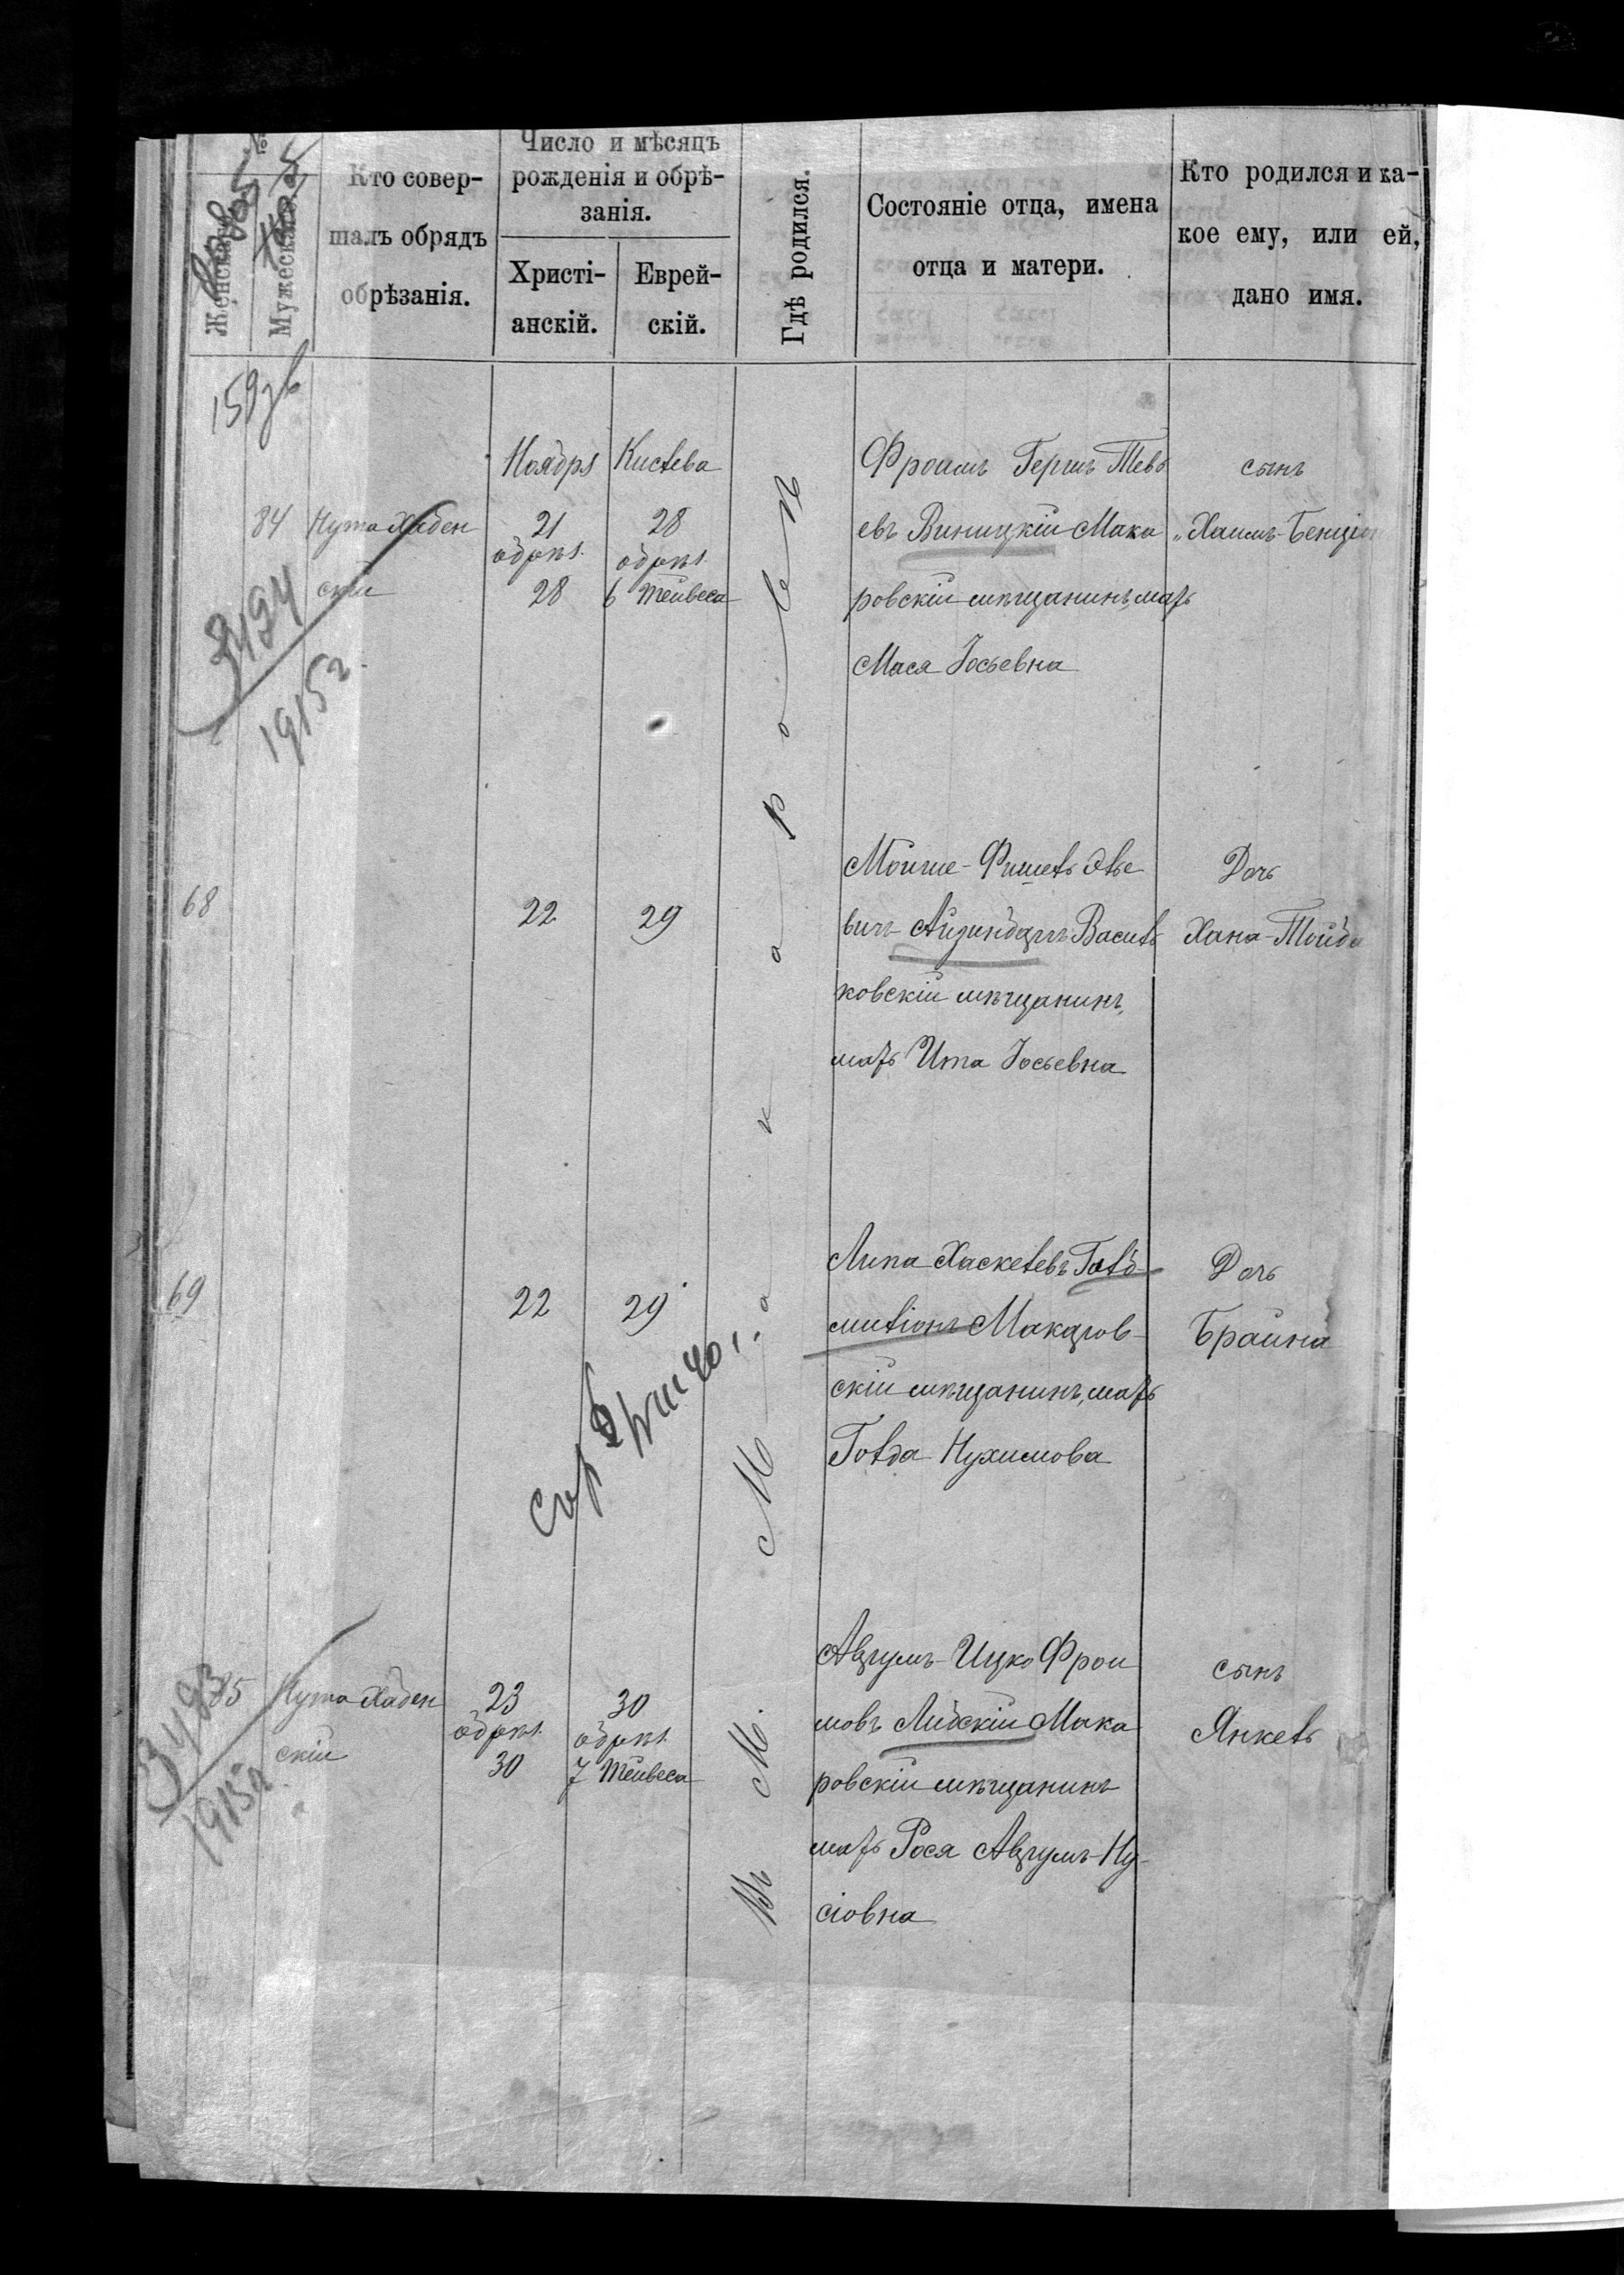 №
Женскаго
Мужескаго
Кто совер-
шалъ обрядъ
обрѣзанія.
Число и мѣсяцъ
рожденія и обрѣ-
занія.
Христі-
анскій.
Еврей-
скій.
Гдѣ родился.
Состояніе отца, имена
отца и матери.
Кто родился и ка-
кое ему, или ей,
дано имя.
159
84
Нута Хаден
скій
3494
1915г.
Ноября
21
обрѣз.
28
Кислева
28
обрѣз.
6 Тейвеса
Въ М. Макаровѣ
Фроимъ Гершъ Тевь
евъ Виницкій Мака
ровскій мѣщанинъ, мать
Мася Іосьевна
сынъ
„Хаимъ-Бенціон
68
22
29
Мойше-Фишель Элье
вичъ Айзиндарлъ Василь
ковскій мѣщанинъ,
мать Ита Іосьевна
Дочь
Хана-Тойба
69
22
29
Липа Хаскелевъ Гольд-
миліонъ Макаров-
скій мѣщанинъ, мать
Голда Нухимова
Дочь
Брайна
85
3493
1915г
Нута Хаден
скій
23
обрѣз.
30
30
обрѣз.
7 Тейвеса
Аврумъ-Ицко Фрои
мовъ Лидскій Мака
ровскій мѣщанинъ
мать Рося Аврумъ-Ну-
сіовна
сынъ
Янкель